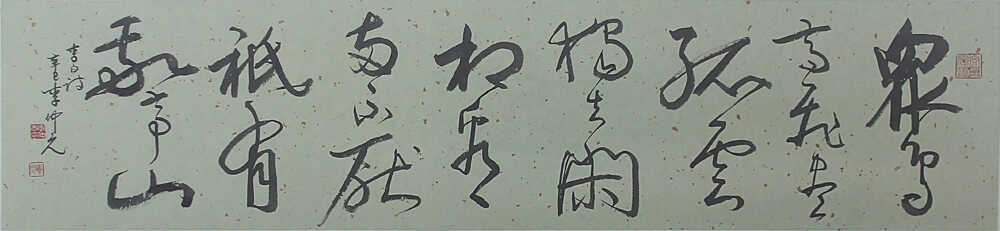 眾鳥
高飛盡
孤雲
獨去閑
相看
兩不厭
祇有
敬亭山
李白詩
辛巳李仲元